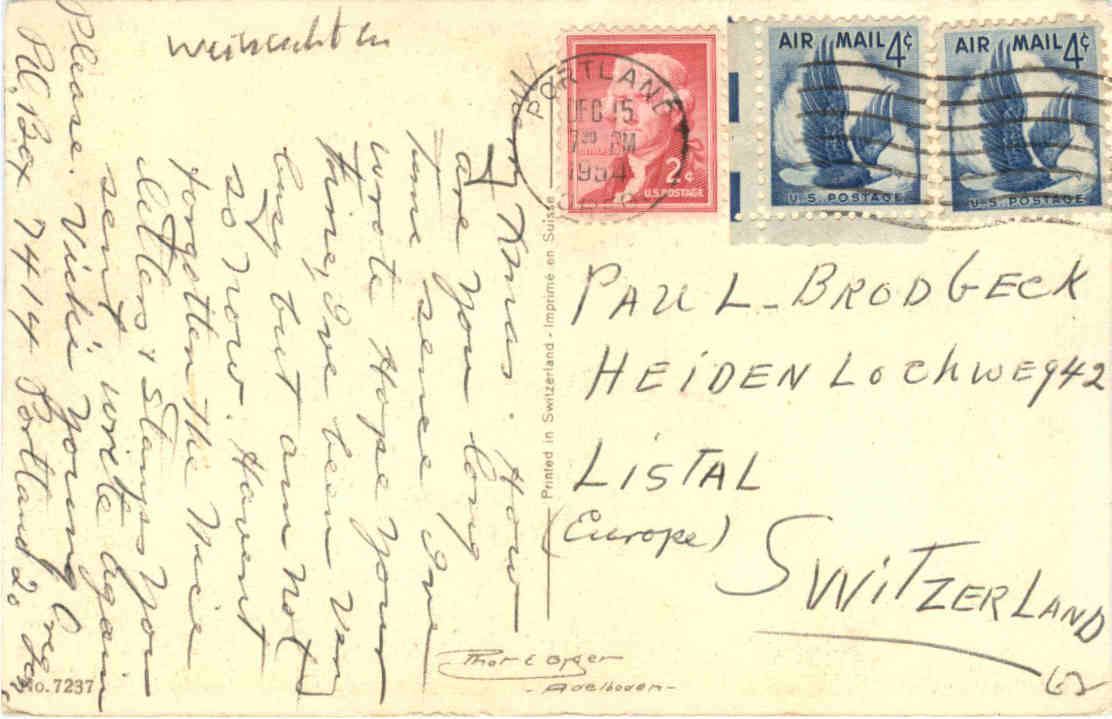 Weihnachten
PORTLAND
DEC 15
7 30 PM
1954
2¢
U.S. POSTAGE
AIR MAIL 4¢
U.S. POSTAGE
AIR MAIL 4¢
U.S. POSTAGE
Xmas. How
are you long
time sence Ive
wrote Hope your
fine, Ive been very
busy but am not
so now. Havent
forgotten the nice
letters & Stamps you
sent write again
Please. Vicki Young
P.O. Box 7414 Portland 20 Oreg
Printed in Switzerland - Imprimé en Suisse
PAUL - BRODBECK
HEIDENLOCHWEG 42
LISTAL
(Europe)
SWITZERLAND
62
- Adelboden -
No. 7237